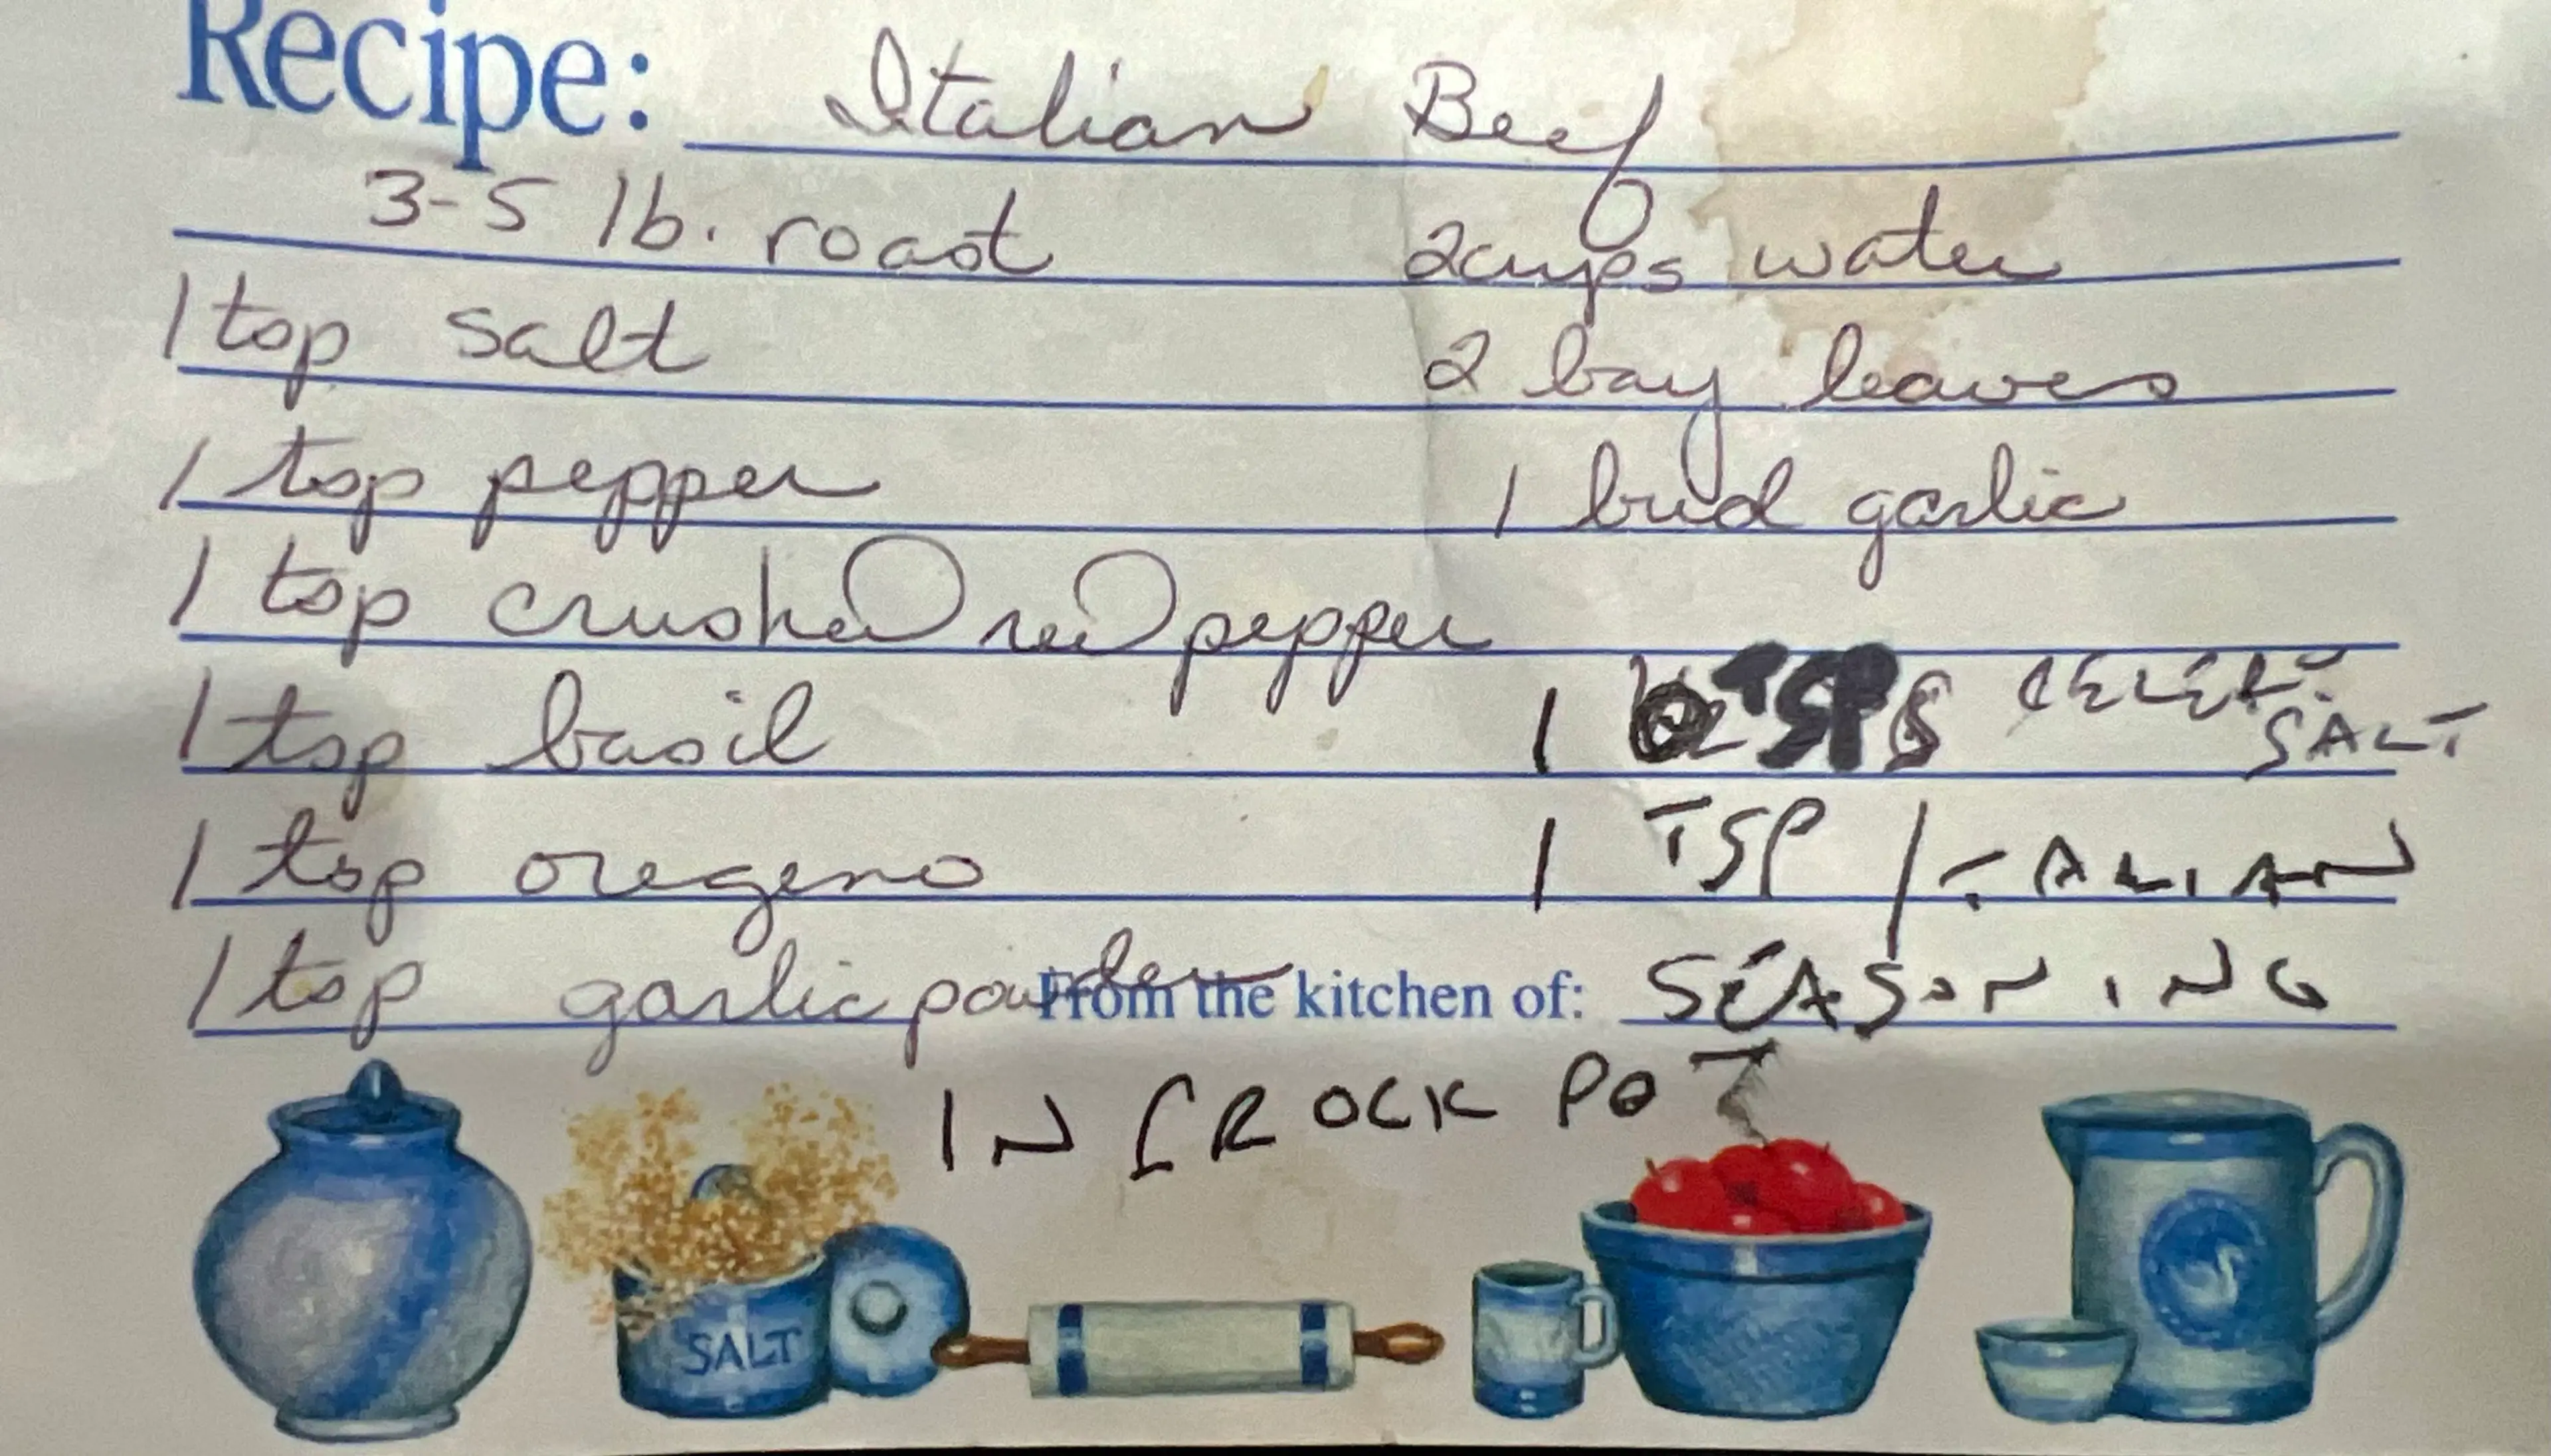 Recipe: Italian Beef
3-5 lb. roast 2cups water
1 tsp salt 2 bay leaves
1 tsp pepper 1 bud garlic
1 tsp crushed red pepper
1 tsp basil 1 TSP CELERY SALT
1 tsp oregeno 1 TSP ITALIAN
1 tsp garlic powder From the kitchen of: SEASONING
IN CROCK POT
SALT